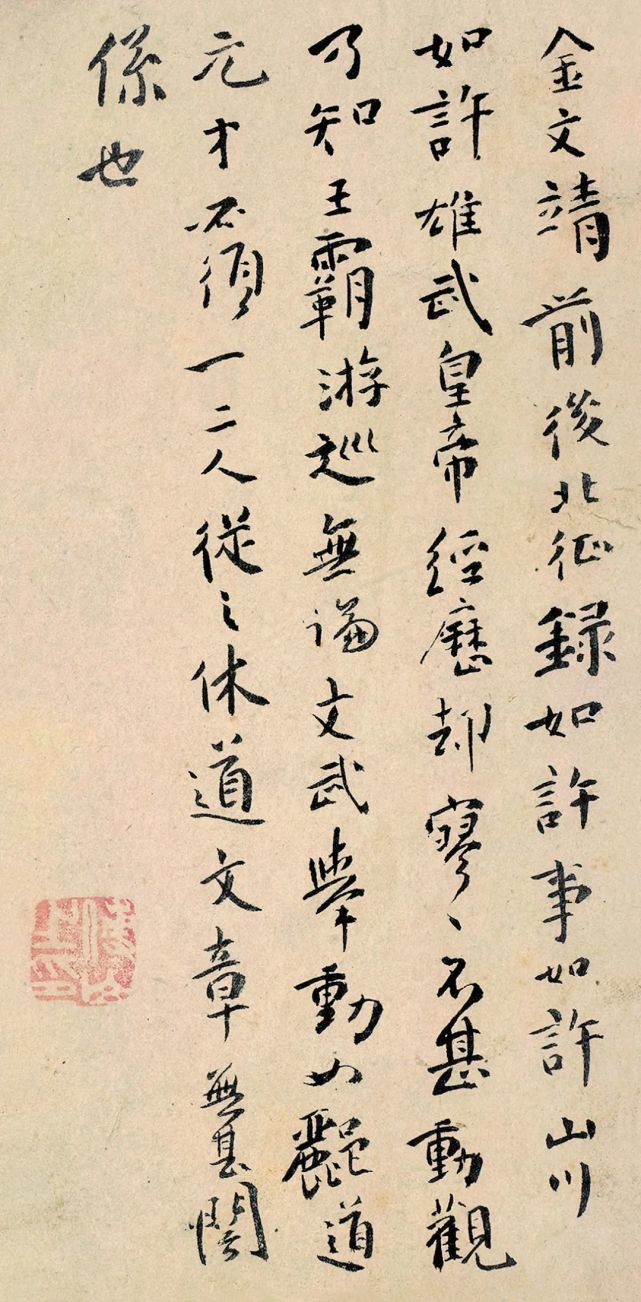 金文靖前後北征録如許事如許山川
如許雄武皇帝經歷却寥〻不甚動觀
乃知王霸游巡無論文武舉動如酈道
元才必須一二人從之休道文章無甚關
係也
傅山之印